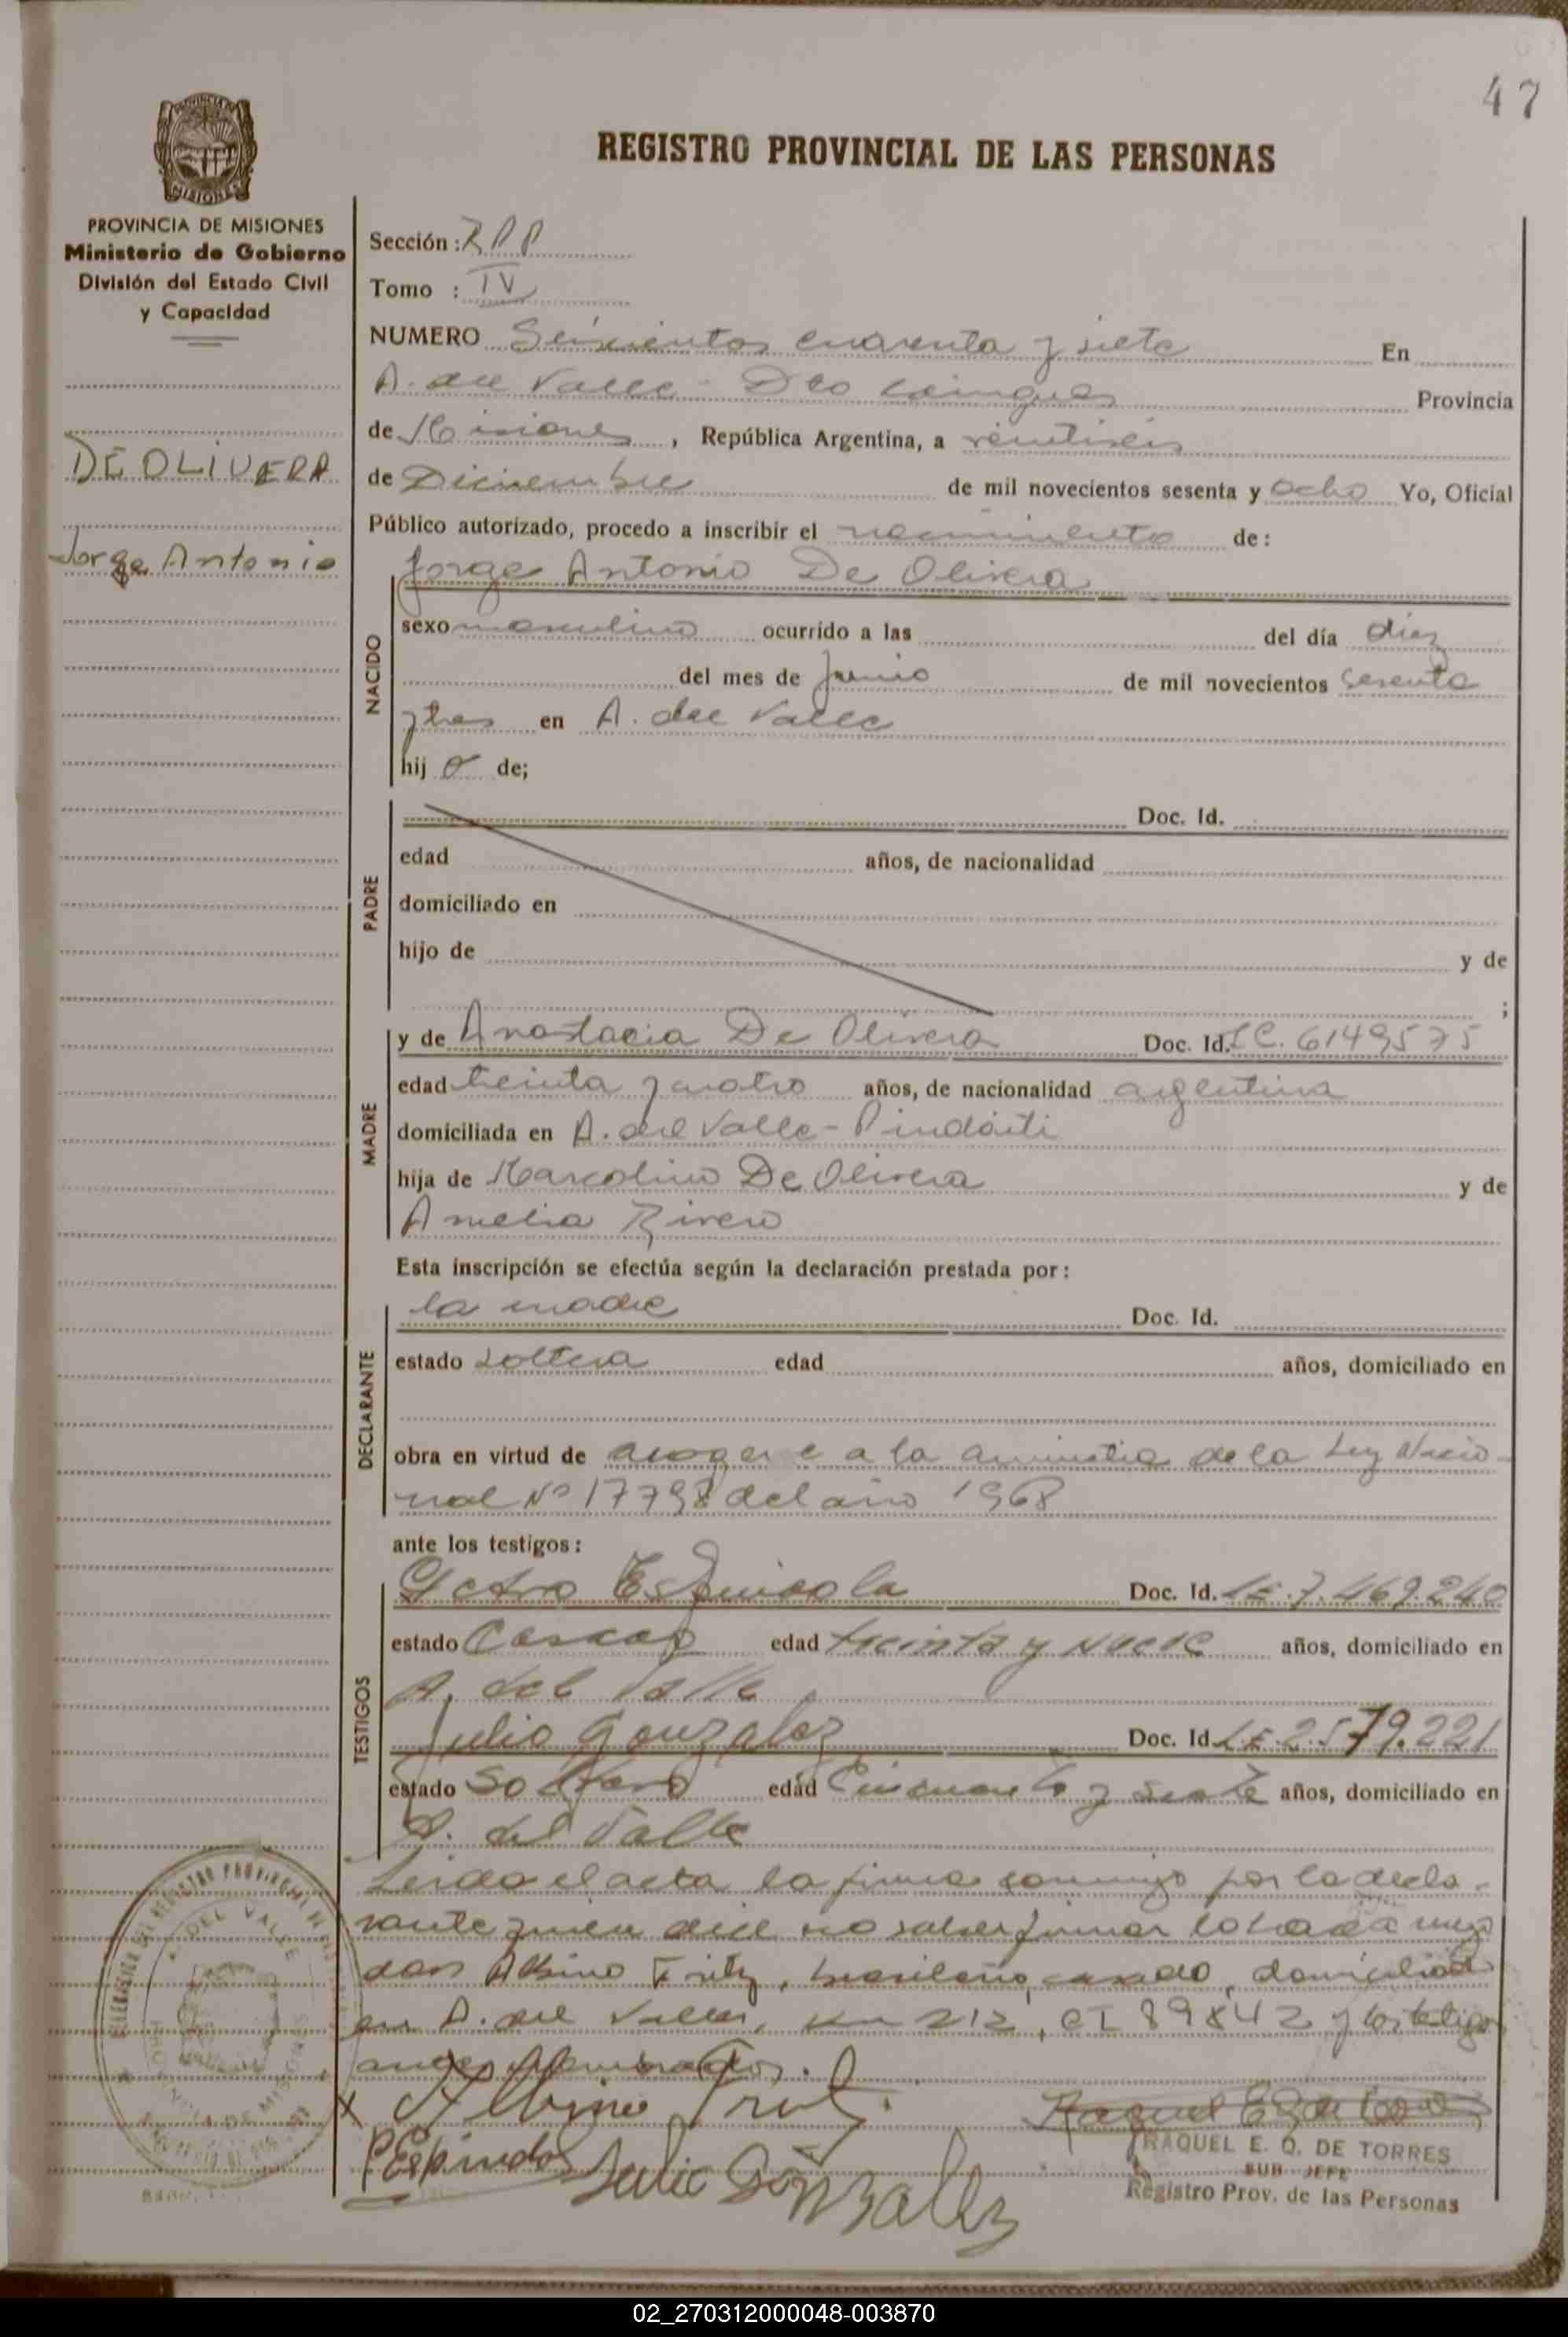 47
PROVINCIA DE MISIONES
Ministerio de Gobierno
División del Estado Civil
y Capacidad
DE OLIVERA
Jorge Antonio
REGISTRO PROVINCIAL DE LAS PERSONAS
Sección: RPP
Tomo : IV
NUMERO Seiscientos cuarenta y siete En
A. del Valle - Dto Cainguas Provincia
de Misiones, República Argentina, a veintiseis
de Diciembre de mil novecientos sesenta y ocho Yo, Oficial
Público autorizado, procedo a inscribir el nacimiento de:
NACIDO
Jorge Antonio De Olivera
sexo masculino ocurrido a las del día diez
del mes de Junio de mil novecientos sesenta
y tres en A. del Valle
hij o de;
PADRE
Doc. Id.
edad años, de nacionalidad
domiciliado en
hijo de y de
;
MADRE
y de Anastacia De Olivera Doc. Id. LC. 6149575
edad treinta y cuatro años, de nacionalidad argentina
domiciliada en A. del Valle - Pindaiti
hija de Marcolino De Olivera y de
Amelia Rivero
Esta inscripción se efectúa según la declaración prestada por:
DECLARANTE
la madre Doc. Id.
estado soltera edad años, domiciliado en
obra en virtud de acogerse a la amnistia de la Ley Nacio-
nal Nº 17798 del año 1968
ante los testigos:
TESTIGOS
Espindola Doc. Id. LE. 7.469.240
estado Casado edad treinta y años, domiciliado en
A. del Valle
Julio Gonzalez Doc. Id LE 2.579.221
estado Soltero edad Cincuenta y años, domiciliado en
A. del Valle
Leida el acta la firma conmigo por la decla-
rante quien dice no saber firmar lo hace a ruego
don Albino Fritz, brasileño, casado, domiciliado
en A. del Valle, km 212, CI 89842 y los testigos
antes nombrados.
x Albino
P Espindola Julio Gonzalez
RAQUEL E. Q. DE TORRES
SUB JEFE
Registro Prov. de las Personas
DEL VALLE
PROVINCIA DE MISIONES
02_270312000048-003870